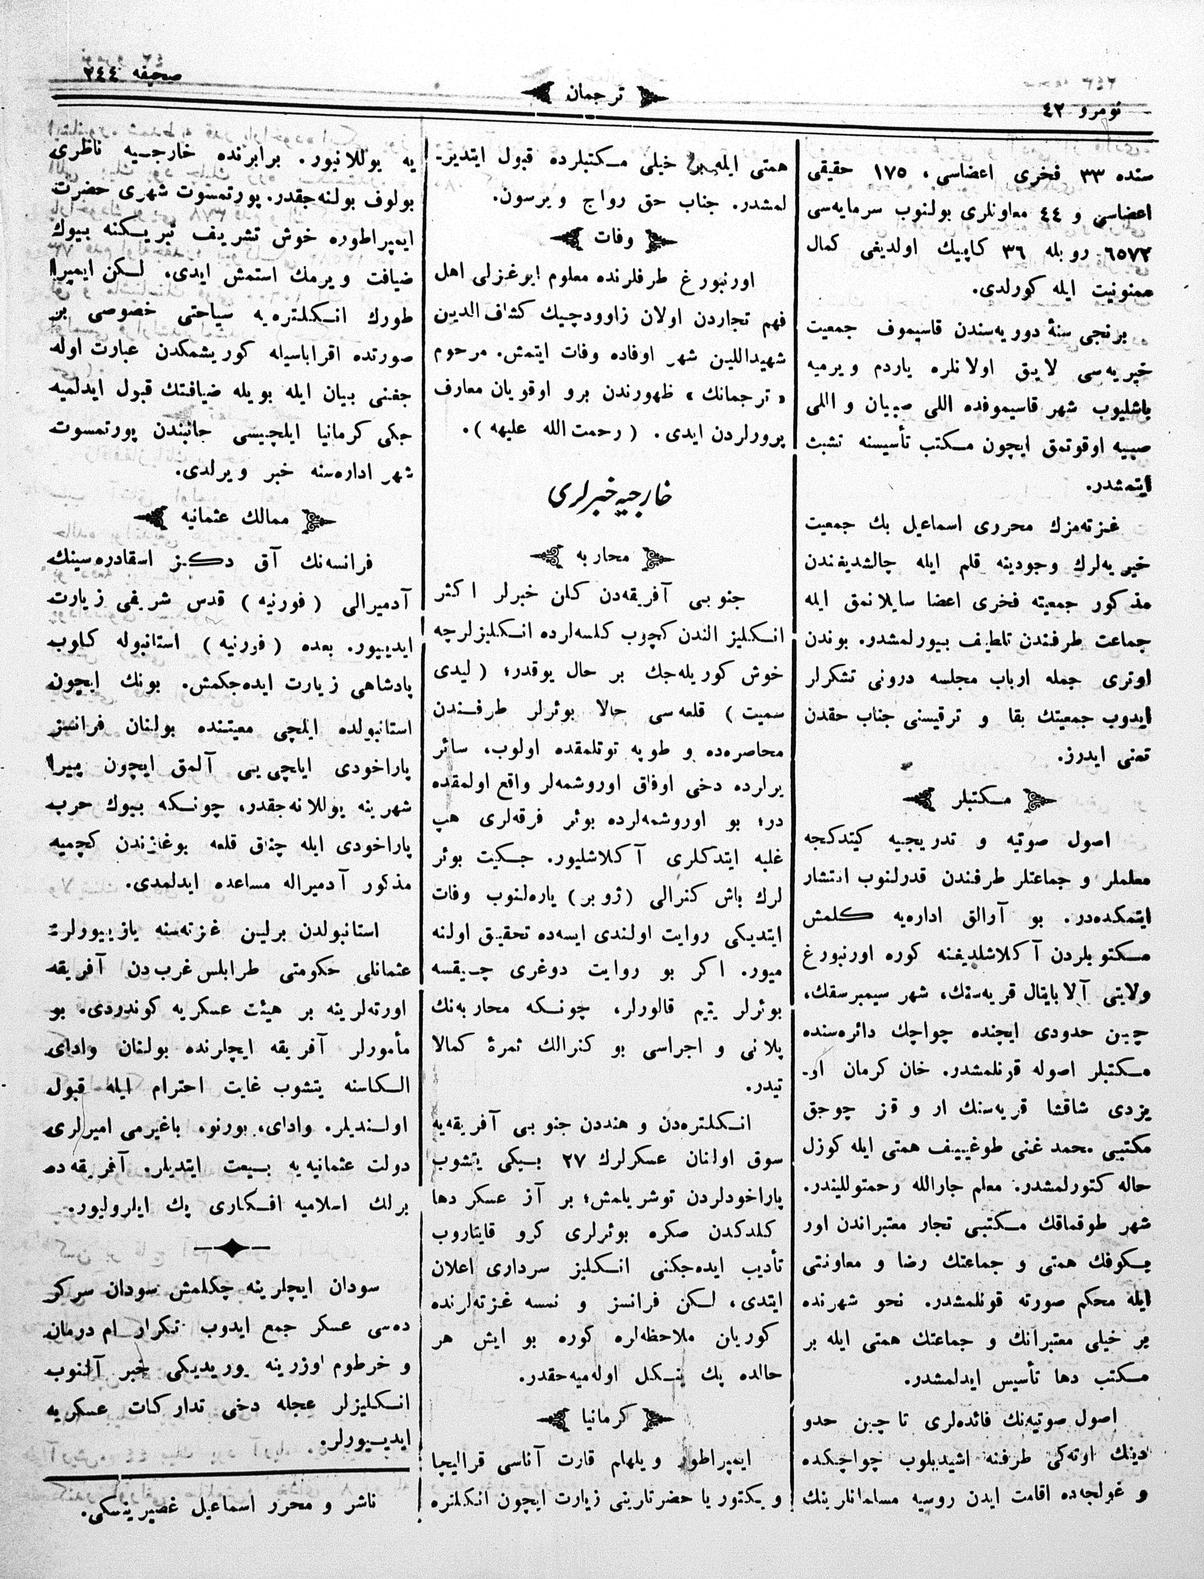 صحیفه ٢٤٤
ترجمان
نومرو ٤٢
سنده ٣٣ فخری اعضاسی، ١٧٥ حقیقی
اعضاسی و ٤٤ معاونلری بولنوب سرمایه‌سی
٦٥٧٢ روبله ٣٦ کاپیك اولدیغی کمال
ممنونیت ایله کورلدی.
برنجی سنهٔ دوریه‌سندن قاسیموف جمعیت
خیریه‌سی لایق اولانلره یاردم ویرمیه
باشلیوب شهر قاسیموفده اللی صبیان و اللی
صبیه اوقوتمق ایچون مکتب تأسیسنه تشبث
ایتمشدر.
غزته‌مزك محرری اسماعیل بك جمعیت
خیریه‌لرك وجودینه قلم ایله چالشدیغندن
مذکور جمعیته فخری اعضا سایلانمق ایله
جماعت طرفندن تلطیف بیورلمشدر. بوندن
اوتری جمله ارباب مجلسه درونی تشکرلر
ایدوب جمعیتك بقا و ترقیسنی جناب حقدن
تمنی ایدرز.
مکتبلر
اصول صوتیه و تدریجیه کیتدکجه
معلملر و جماعتلر طرفندن قدرلنوب انتشار
ایتمکده‌در. بو آرالق اداره‌یه کلمش
مکتوبلردن آکلاشلدیغنه کوره اورنبورغ
ولایتی آلابایتال قریه‌سنك، شهر سیمبرسقك،
چین حدودی ایچنده چواچك دائره‌سنده
مکتبلر اصوله قونلمشدر. خان کرمان او-
یزدی شاقشا قریه‌سنك ار و قز چوجق
مکتبی محمد غنی طوغییف همتی ایله کوزل
حاله کتورلمشدر. معلم جارالله رحمتوللیندر.
شهر طوقماقك مکتبی تجار معتبراندن اور
یکوفك همتی و جماعتك رضا و معاونتی
ایله محکم صورته قونلمشدر. نحو شهرنده
بر خیلی معتبرانك و جماعتك همتی ایله بر
مکتب دها تأسیس ایدلمشدر.
اصول صوتیه‌نك فائده‌لری تا چین حدو
دینك اوته‌کی طرفنه اشیدیلوب چواچکده
و غولجه‌ده اقامت ایدن روسیه مسلمانلرینك
همتی ایله بر خیلی مکتبلرده قبول ایتدیر-
لمشدر. جناب حق رواج ویرسون.
وفات
اورنبورغ طرفلرنده معلوم ایوغزلی اهل
فهم تجاردن اولان زاوودچیك کشاف الدین
شهیداللین شهر اوفاده وفات ایتمش. مرحوم
« ترجمانك » ظهورندن برو اوقویان معارف
پرورلردن ایدی. ( رحمت الله علیه ).
خارجیه خبرلری
محاربه
جنوبی آفریقه‌دن کلن خبرلر اکثر
انکلیز الندن کچوب کلسه‌لرده انکلیزلرچه
خوش کوریله‌جك بر حال یوقدر؛ ( لیدی
سمیت ) قلعه‌سی حالا بوئرلر طرفندن
محاصره‌ده و طوپه توتلمقده اولوب، سائر
یرلرده دخی اوفاق اوروشمه‌لر واقع اولمقده
در؛ بو اوروشمه‌لرده بوئر فرقه‌لری هپ
غلبه ایتدکلری آکلاشلیور. جکیت بوئر
لرك باش کنرالی (ژوبر) یاره‌لنوب وفات
ایتدیکی روایت اولندی ایسه‌ده تحقیق اولنه
میور. اکر بو روایت دوغری چیقسه
بوئرلر یتیم قالورلر، چونکه محاربه‌نك
پلانی و اجراسی بو کنرالك ثمرهٔ کمالا
تیدر.
انکلتره‌دن و هنددن جنوبی آفریقه‌یه
سوق اولنان عسکرلرك ٢٧ بیکی یتشوب
پاراخودلردن توشریلمش؛ بر آز عسکر دها
کلدکدن صکره بوئرلری کرو قایتاروب
تأدیب ایده‌جکنی انکلیز سرداری اعلان
ایتدی، لکن فرانسز و نمسه غزته‌لرنده
کوریان ملاحظه‌لره کوره بو ایش هر
حالده پك ینکل اوله‌میه‌جقدر.
کرمانیا
ایمپراطور ویلهام قارت آناسی قرالیچا
ویکتوریا حضرتلرینی زیارت ایچون انکلتره
یه یوللانیور. برابرنده خارجیه ناظری
بولوف بولنه‌جقدر. پورتمسوت شهری حضرت
ایمپراطوره خوش تشریف تبریکنه بیوك
ضیافت ویرمك استمش ایدی. لکن ایمپرا
طورك انکلتره‌یه سیاحتی خصوصی بر
صورتده اقراباسیله کوریشمکدن عبارت اوله
جغنی بیان ایله بویله ضیافتك قبول ایدلمیه
جکی کرمانیا ایلچیسی جانبندن پورتمسوت
شهر اداره‌سنه خبر ویرلدی.
ممالك عثمانیه
فرانسه‌نك آق دکیز اسقادره‌سینك
آدمیرالی ( فورنیه ) قدس شریفی زیارت
ایدیور. بعده ( فورنیه ) استانبوله کلوب
پادشاهی زیارت ایده‌جکمش. بونك ایچون
استانبولده ایلچی معیتنده بولنان فرانسز
پاراخودی ایلچی‌یی آلمق ایچون پیرا
شهرینه یوللانه‌جقدر، چونکه بیوك حرب
پاراخودی ایله چناق قلعه بوغازندن کچمیه
مذکور آدمیراله مساعده ایدلمدی.
استانبولدن برلین غزته‌سنه یازیورلر؛
عثمانلی حکومتی طرابلس غرب‌دن آفریقه
اورته‌لرینه بر هیئت عسکریه کوندردی. بو
مأمورلر آفریقه ایچلرنده بولنان وادای
الکاسنه یتشوب غایت احترام ایله قبول
اولندیلر. وادای، بورنو، باغیرمی امیرلری
دولت عثمانیه‌یه بیعت ایتدیلر. آفریقه‌ده
برلك اسلامیه افکاری پك ایلرولیور.
سودان ایچلرینه چکلمش سودان سرکر
ده‌سی عسکر جمع ایدوب تکرار ام درمان
و خرطوم اوزرینه یوریدیکی خبر آلنوب
انکلیزلر عجله دخی تدارکات عسکریه
ایدیورلر.
ناشر و محرر اسماعیل غصپرینسکی.